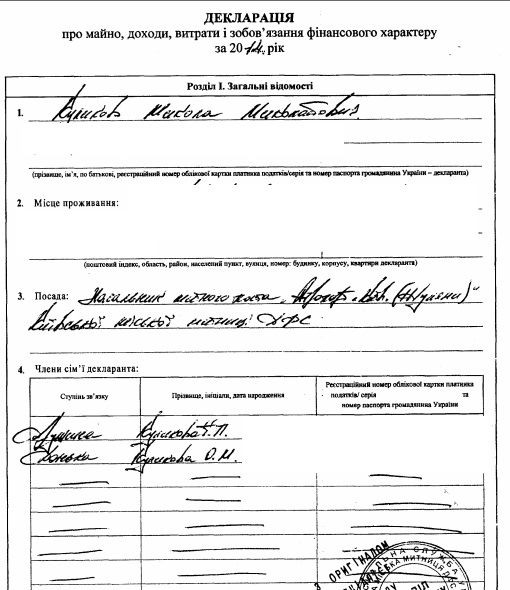 ДЕКЛАРАЦІЯ
про майно, доходи, витрати і зобов'язання фінансового характеру
за 2014 рік
Розділ I. Загальні відомості
1. Куліков Микола Миколайович
(прізвище, ім'я, по батькові, реєстраційний номер облікової картки платника податків/серія та номер паспорта громадянина України – декларанта)
2. Місце проживання:
(поштовий індекс, область, район, населений пункт, вулиця, номер: будинку, корпусу, квартири декларанта)
3. Посада: Начальник митного поста „Аеропорт „Київ" (Жуляни)"
Київської міської митниці ДФС
4. Члени сім'ї декларанта:
Ступінь зв'язку Прізвище, ініціали, дата народження Реєстраційний номер облікової картки платника
податків/ серія та
номер паспорта громадянина України
Дружина Кулікова Т. П.
Донька Кулікова О. М.
З ОРИГІНАЛОМ